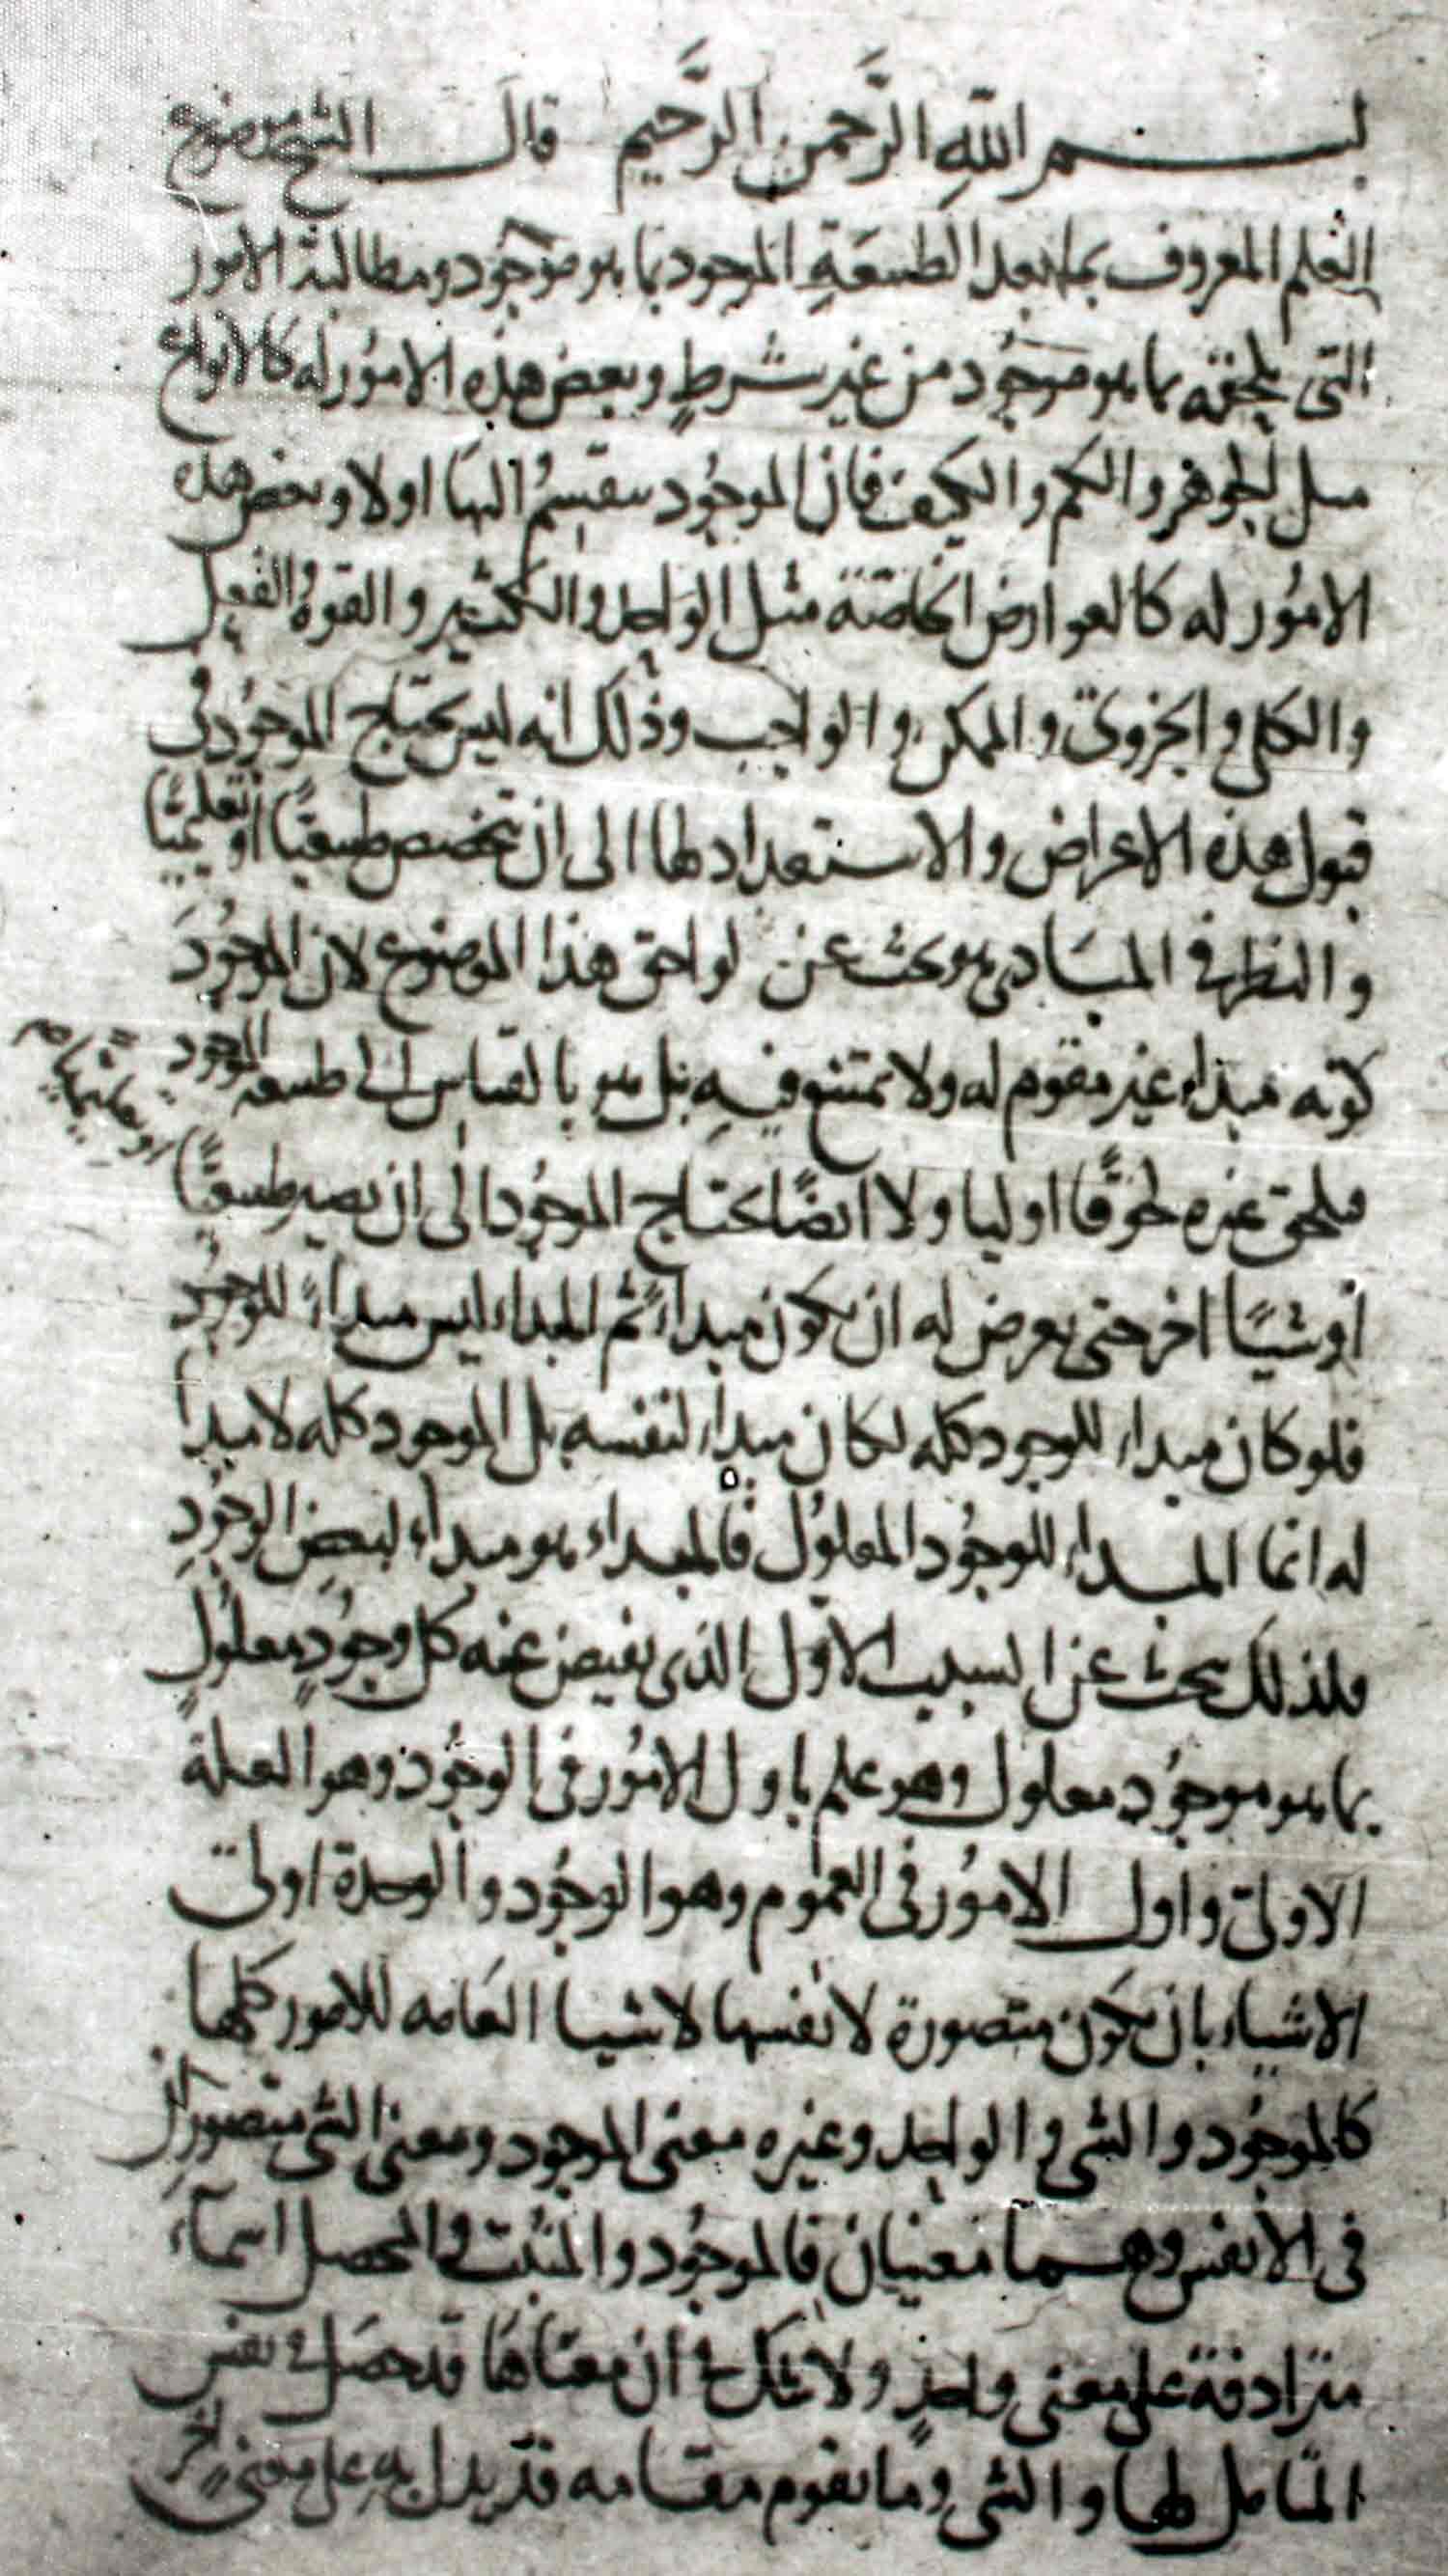 بسم الله الرَّحمن الرَّحيم قال الشيخ موضوع
العلم المعروف بما بعد الطبيعَةِ الموجود بما هو موجود ومطالبة الامور
التى تلحقه بما هو موجُود من غير شرطٍ وبعض هذه الامُور له كالانواع
مثل الجوهر والكم والكيف فان الموجُود ينقسِمُ اليها اولا وبعض هذه
الامُور له كالعوارض الخاصّة مثل الواحد والكثير والقوة والفعل
والكلى والجزوى والممكن والواجب وذلك انه ليس يحتاج الموجُود فى
قبول هذه الاعراض والاستعداد لها الى ان يتخصص طبيعيًا او تعليميًا
والنظر فى المبَادى هو بحث عن لواحق هذا الموضوع لان الموجُودَ
كونه مبداء غير مقوم له ولا ممتنع فيهِ بل هو بالقياس الى طبيعه الموجود
فلحق غيره لحُوقًا اوليا ولا ايضًا يحتاج الموجُود الى ان يصير طبيعيًا
او شيًا اخر حتى يعرض له ان يكون مبداءً ثم المبداء ليس مبداءً للوجُود
فلو كان مبداء للوجود كله لكان مبداء لنفسه بل الموجود كله لا مبدا
له انما المبداء للوجُود المعلوُل فالمبداء هو مبداء لبعض الوجُودِ
فلذلك يبحث عن السبب الاوّل الذى يفيض عنه كل وجُودٍ معلُولٍ
بما هو موجوُد معلول وهو علم باول الامُور فى الوجُود وهو العلة
الاولى واول الامُور فى العموم وهو الوجُود والوحدة اولى
الاشياء بان يكون متصورة لانفسها لاشيا العَامه للامور كلها
كالموجُود والشى والواحد وغيره معنى الموجود ومعنى الشى متصوران
فى الانفس وهما معنيان فالموجُود والمثبت والمحصل اسماء
مترادفة على معنى واحدٍ ولا شك فى ان معناها قد حصَل فى نفس
المتامل لها والشى وما يقوم مقامه قد يدل به على معنى اخر